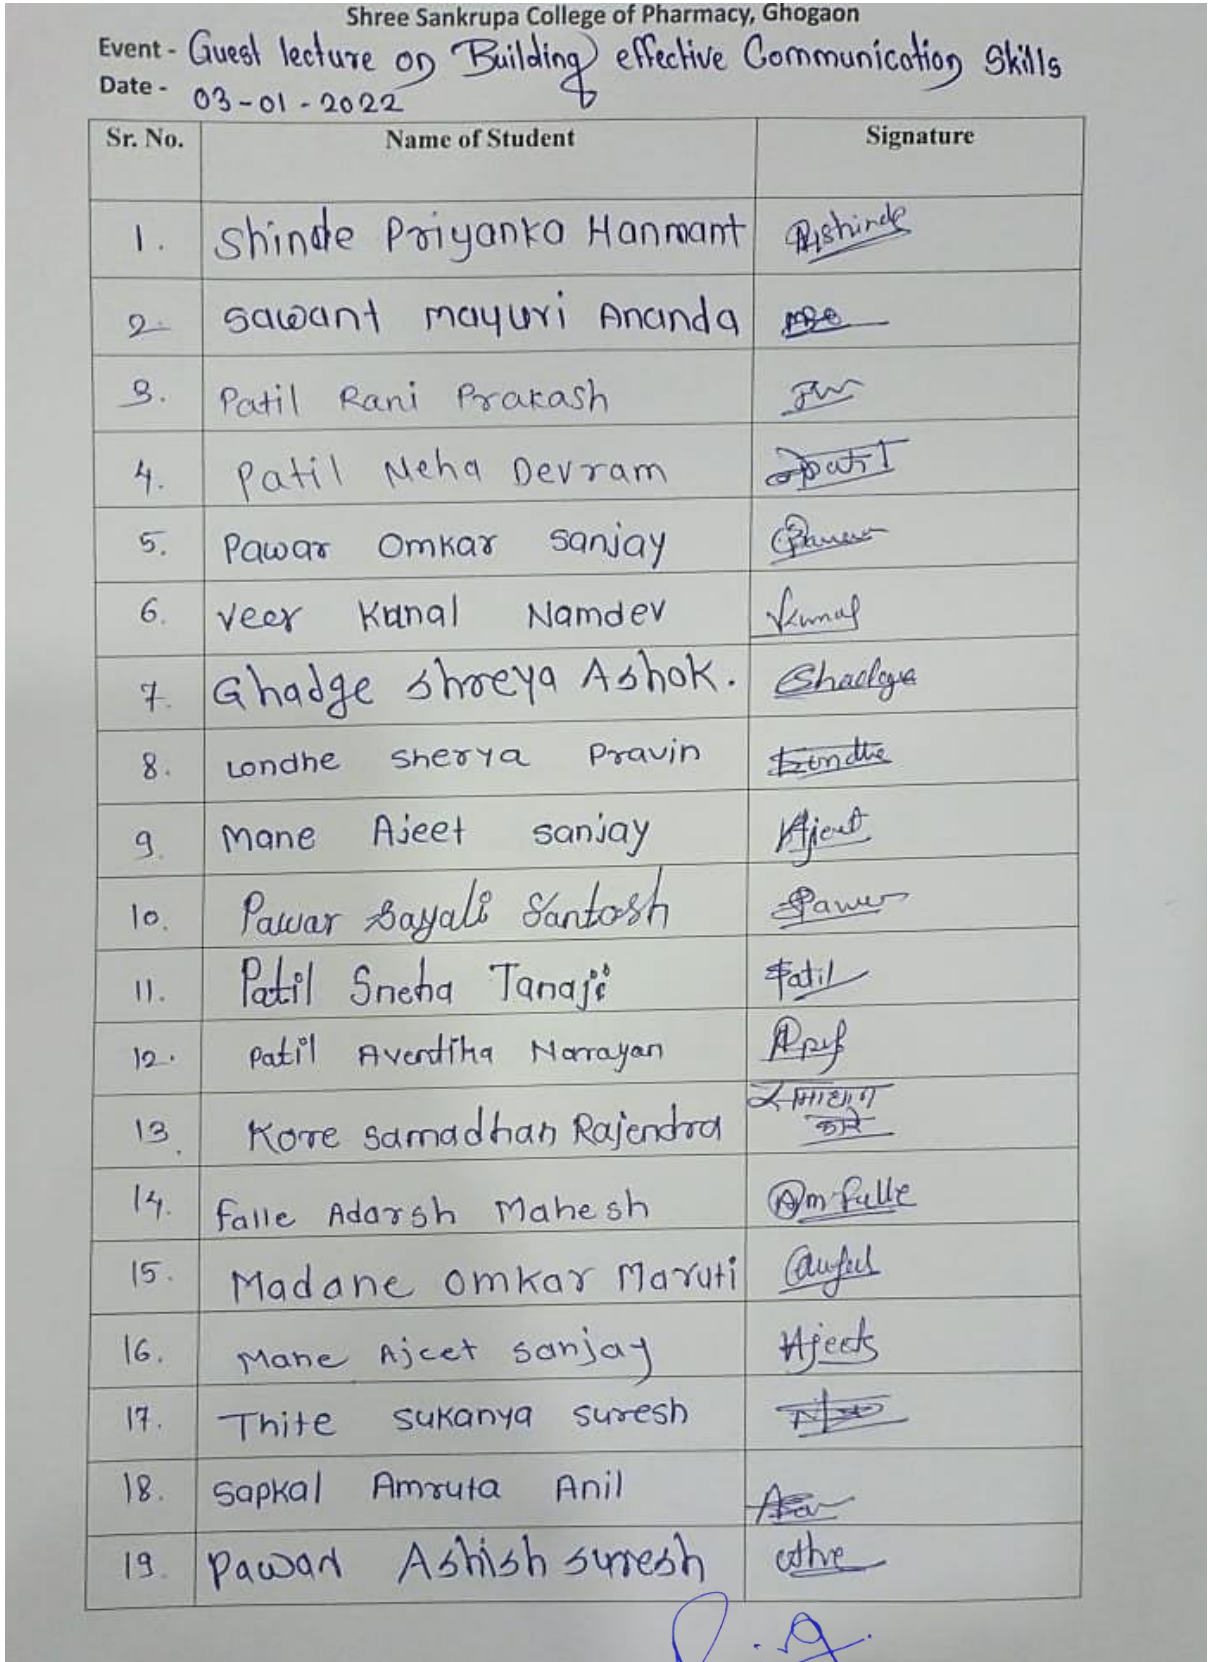 Shree Sankrupa College of Pharmacy, Ghogaon
Event - Guest lecture on Building effective Communication Skills
Date - 03-01-2022
Sr. No. Name of Student Signature
1. Shinde Priyanka Hanmant Pshinde
2. Sawant mayuri Ananda
3. Patil Rani Prakash
4. Patil Neha Devram Patil
5. Pawar Omkar Sanjay
6. Veer Kunal Namdev Vkunal
7. Ghadge Shreya Ashok. Ghadge
8. Londhe Sherya Pravin Londhe
9. Mane Ajeet Sanjay Ajeet
10. Pawar Sayali Santosh Pawar
11. Patil Sneha Tanaji Patil
12. Patil Averdtha Narrayan
13. Kore Samadhan Rajendra समाधान
कोरे
14. Falle Adarsh Mahesh Am Falle
15. Madane Omkar Maruti
16. Mane Ajeet Sanjay Ajeet
17. Thite Sukanya Suresh
18. Sapkal Amruta Anil
19. Pawar Ashish Suresh